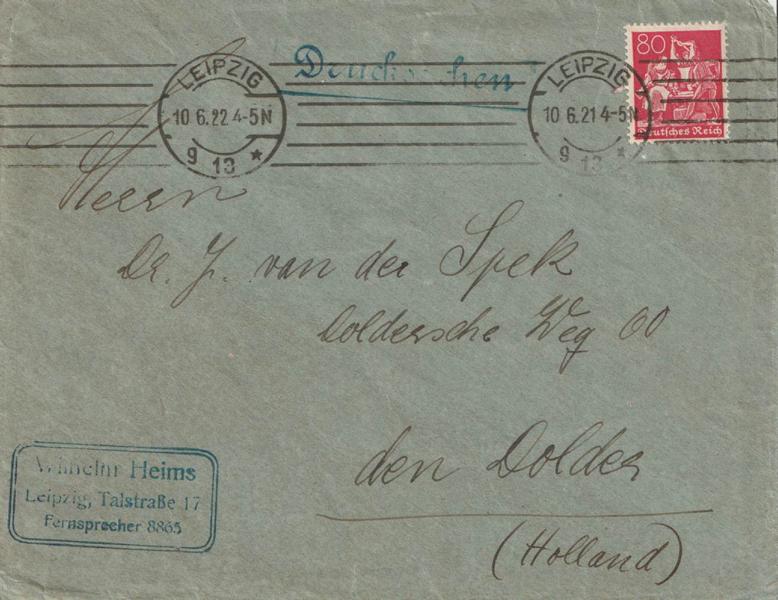 LEIPZIG
10 6.22 4-5N
9 13 *
Drucksachen
LEIPZIG
10 6.21 4-5N
9 13 *
80
Deutsches Reich
Herrn
Dr. J. van der Spek
Doldersche Weg 60
den Dolder
(Holland)
Wilhelm Heims
Leipzig, Talstraße 17
Fernsprecher 8865